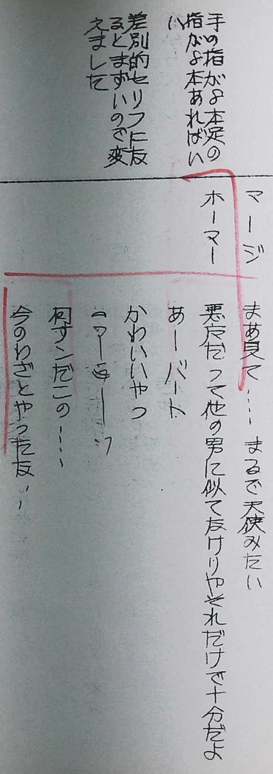 マージ
まあ見て…　まるで天使みたい
ホーマー
悪友だって他の男に似てなけりやそれだけで十分だよ
あーバート
かわいいやつ
何すンだこの……
今のわざとやったな…
手の指が4本足の
指が4本あればい
い
差別的セリフに友
るとまずいので変
えました